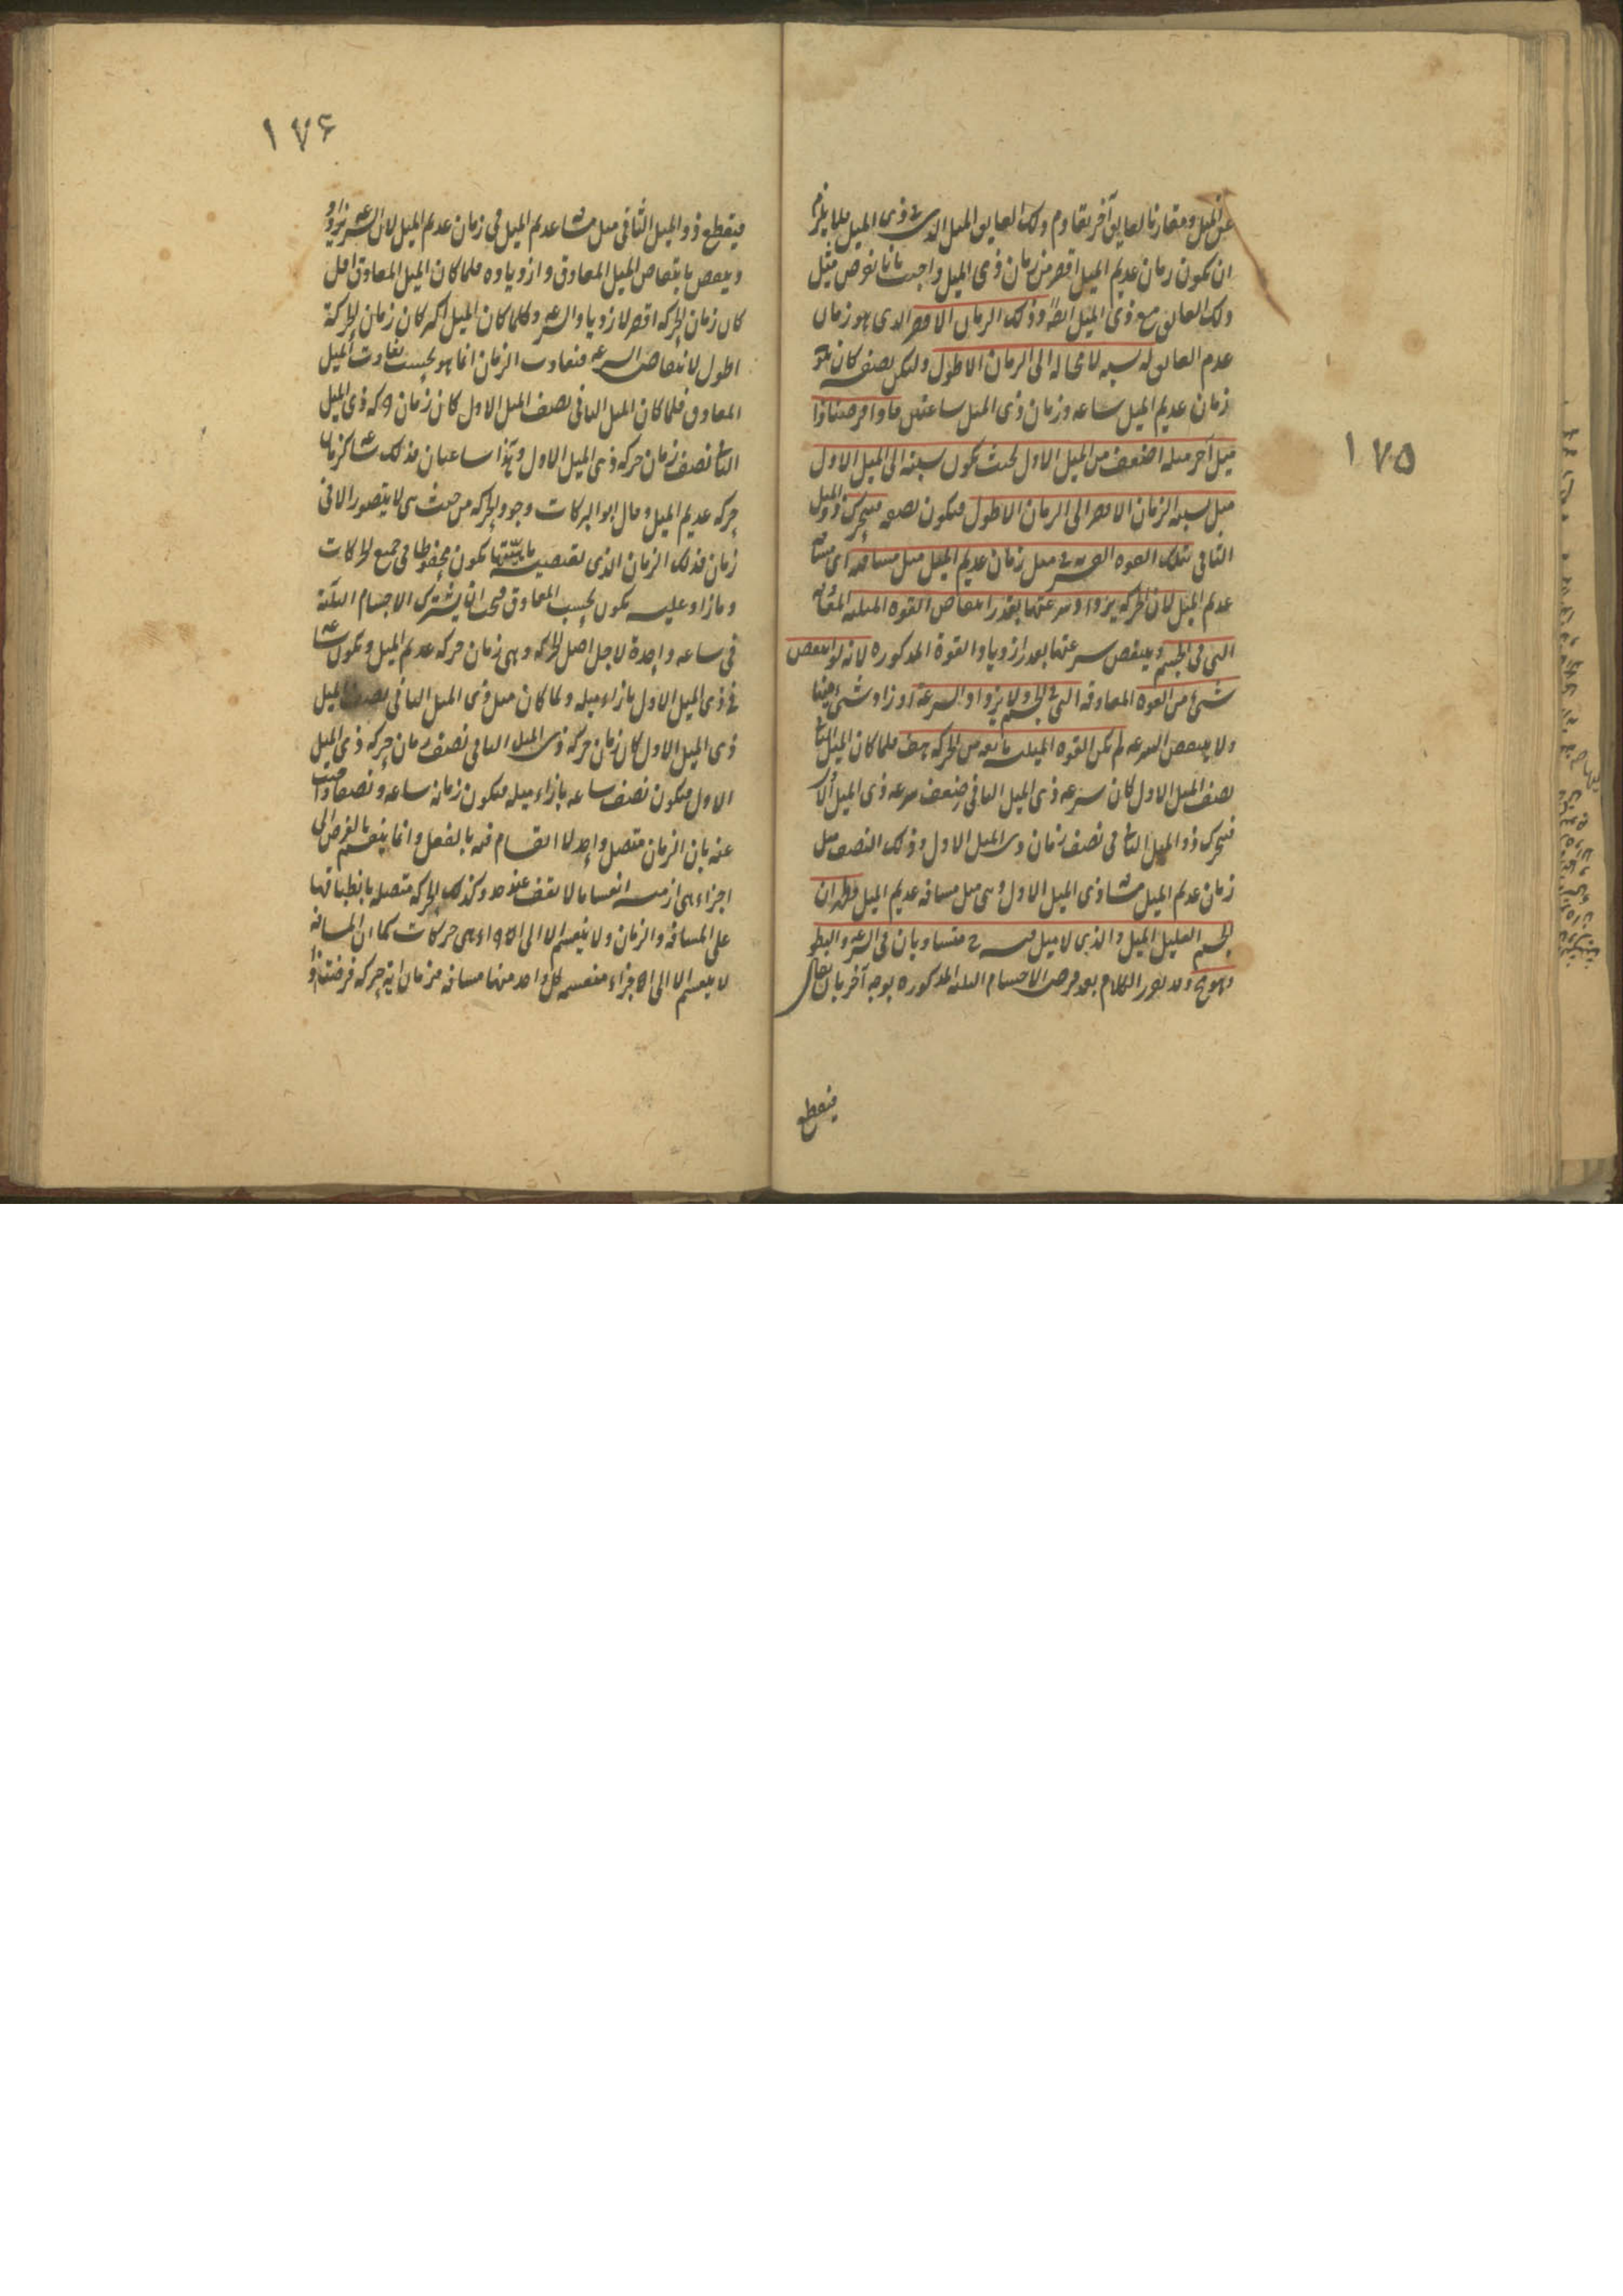 ١٧٥
عن الميل ومقارنا لعايق آخر يقاوم ذلك العايق الميل الذي في ذي الميل فلا يلزم
ان يكون زمان عديم الميل اقصر من زمان ذي الميل واجيب بانا نفرض مثل
ذلك العايق مع ذي الميل ايضا وذلك الزمان الاقصر الذي هو زمان
عدم العايق له نسبة لا محالة الى الزمان الاطول وليكن نصفه كان يكون
زمان عديم الميل ساعة وزمان ذي الميل ساعتين فاذا فرضنا ذا
ميل آخر ميله اضعف من الميل الاول بحيث يكون نسبته الى الميل الاول
مثل نسبة الزمان الاقصر الى الزمان الاطول فيكون نصفه فيتحرك ذو الميل
الثاني بتلك القوة القسرية في مثل زمان عديم الميل مثل مسافته اي مسافة
عديم الميل لان الحركة يزداد سرعتها بقدر انتقاص القوة الميلية المعاوقة
التي في الجسم وينتقص سرعتها بقدر ازدياد القوة المذكورة لانه لو انتقص
شيء من القوة المعاوقة التي في الجسم ولا يزداد السرعة او زاد شيء منها
ولا ينتقص السرعة لم تكن القوة الميلية مانعة من الحركة هف فلما كان الميل الثاني
نصف الميل الاول كان سرعة ذي الميل الثاني ضعف سرعة ذي الميل الاول
فيتحرك ذو الميل الثاني في نصف زمان ذي الميل الاول وذلك النصف مثل
زمان عديم الميل مسافة ذي الميل الاول وهي مثل مسافة عديم الميل فظهر ان
الجسم القليل الميل والذي لا ميل فيه متساويان في السرعة والبطؤ
وهو مح وقد يقرر الكلام بعد فرض الاجسام الثلثة المذكورة بوجه آخر بان يقال
فيقطع
١٧۶
فيقطع ذو الميل الثاني مثل مسافة عديم الميل في زمان عديم الميل لان السرعة يزداد
وينتقص بانتقاص الميل المعاوق وازدياده فلما كان الميل المعاوق اقل
كان زمان الحركة اقصر لازدياد السرعة وكلما كان الميل اكثر كان زمان الحركة
اطول لانتقاص السرعة فتفاوت الزمان انما هو بحسب تفاوت الميل
المعاوق فلما كان الميل الثاني نصف الميل الاول كان زمان حركة ذي الميل
الثاني نصف زمان حركة ذي الميل الاول وهذا ساعتان فذلك ساعة كزمان
حركة عديم الميل وقال ابو البركات وجود الحركة من حيث هي لا يتصور الا في
زمان فذلك الزمان الذي تقتضيه ماهيتها يكون محفوظا في جميع الحركات
وما زاد عليه يكون بحسب المعاوق فيجب ان يشترك الاجسام الثلثة
في ساعة واحدة لاجل اصل الحركة وهي زمان حركة عديم الميل ويكون ساعة
في ذي الميل الاول بازاء ميله ولما كان ميل ذي الميل الثاني نصف ميل
ذي الميل الاول كان زمان حركة ذي الميل الثاني نصف زمان حركة ذي الميل
الاول فيكون نصف ساعة بازاء ميله فيكون زمانه ساعة ونصفا واجيب
عنه بان الزمان متصل واحد لا انقسام فيه بالفعل وانما ينقسم بالفرض الى
اجزاء هي ازمنة انقساما لا يقف عند حد وكذلك الحركة متصلة بانطباقها
على المسافة والزمان ولا ينقسم الا الى اجزاء هي حركات كما ان المسافة
لا ينقسم الا الى اجزاء منقسمة كل واحد منها مسافة فزمان اية حركة فرضتنا